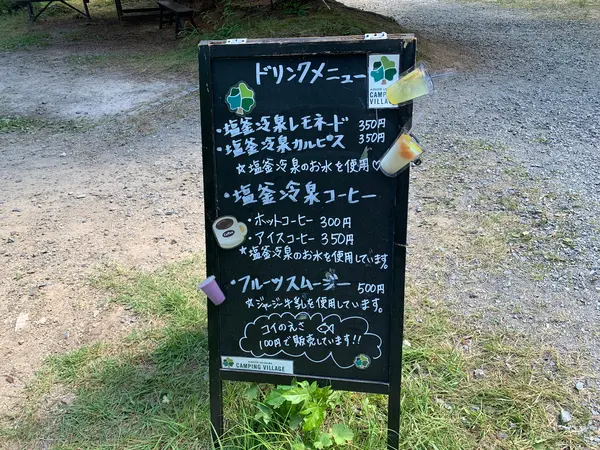 ドリンクメニュー
CAMPING VILLAGE
・塩釜冷泉レモネード 350円
・塩釜冷泉カルピス 350円
☆塩釜冷泉のお水を使用♡
・塩釜冷泉コーヒー
・ホットコーヒー 300円
・アイスコーヒー 350円
☆塩釜冷泉のお水を使用しています。
・フルーツスムージー 500円
☆ジャージー牛乳を使用しています。
コイのえさ
100円で販売しています!!
CAMPING VILLAGE